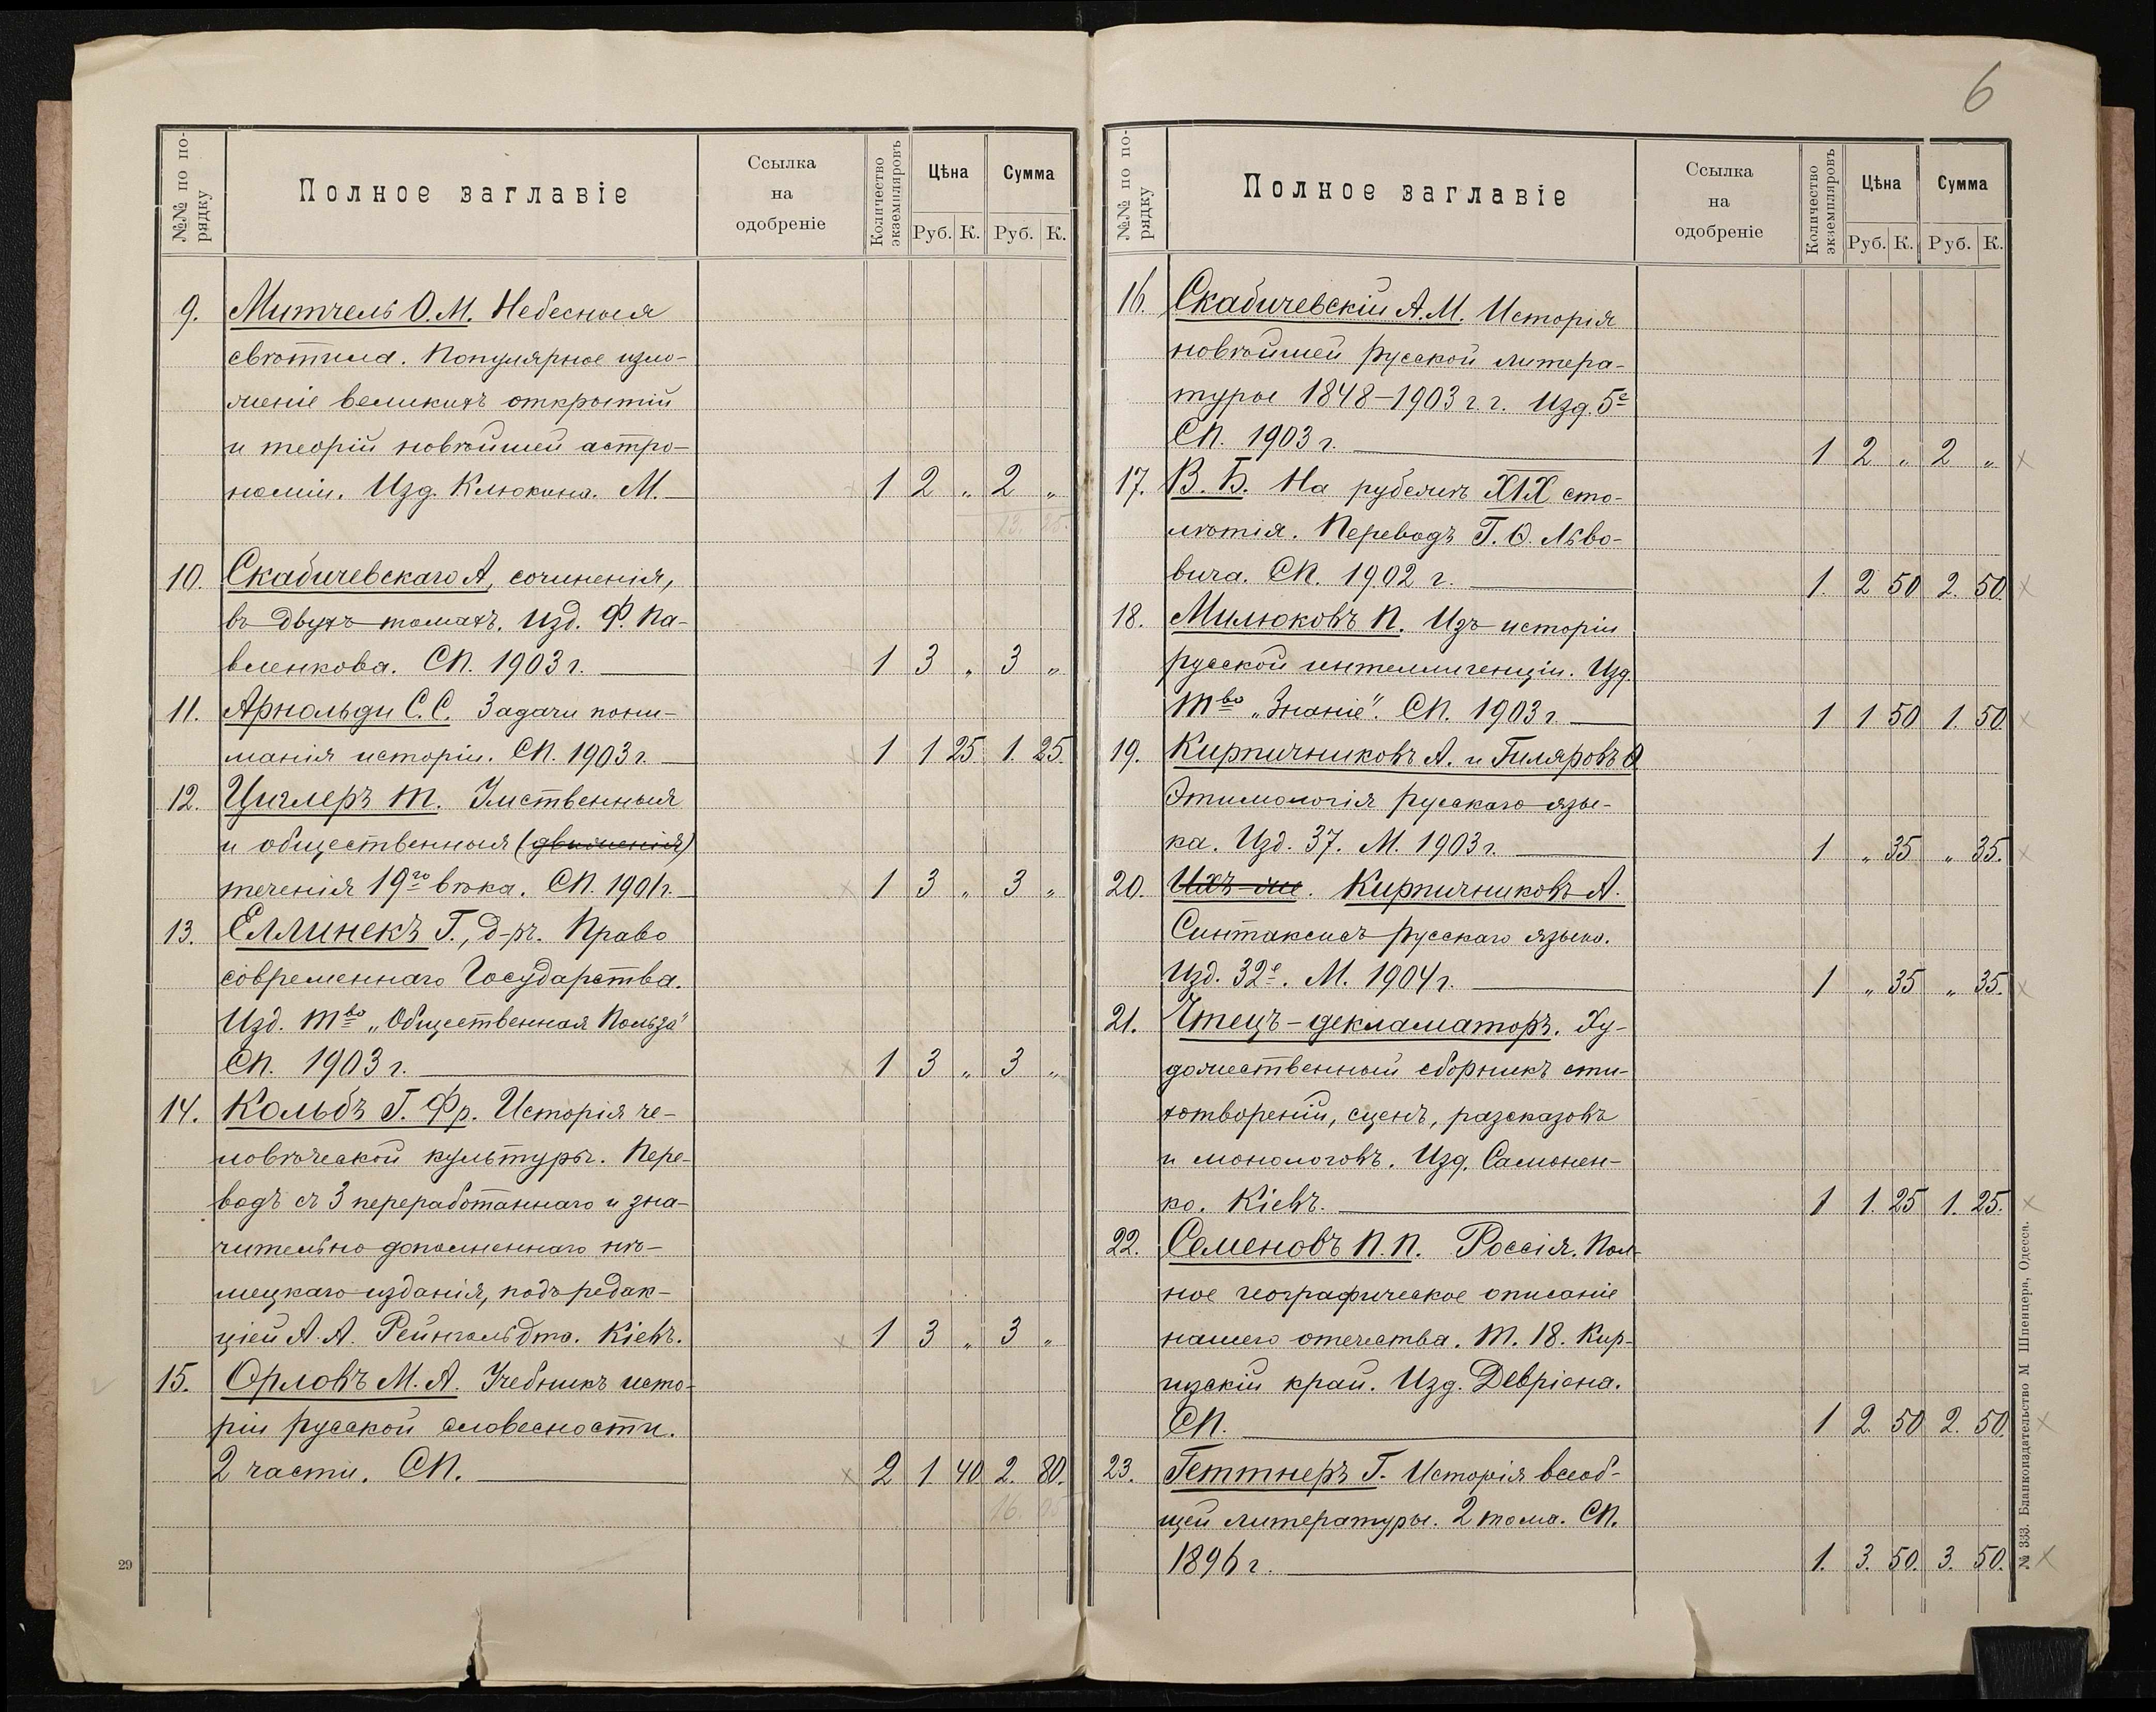 6
№№ по по-
рядку
Полное заглавіе
Ссылка
на
одобреніе
Количество
экземпляровъ
Цѣна
Сумма
Руб. К. Руб. К.
9. Митчель О.М. Небесныя
свѣтила. Популярное изло-
женіе великихъ открытій
и теорій новѣйшей астро-
номіи. Изд. Клюкина. М. — 1 2 „ 2 „
10. Скабичевскаго А, сочиненія,
въ двухъ томахъ. Изд. Ф. Па-
вленкова. СП. 1903 г. — 1 3 „ 3 „
11. Арнольди С.С. Задачи пони-
манія исторіи. СП. 1903 г. — 1 1 25 1. 25.
12. Циглеръ Т. Умственныя
и общественныя (движенія)
теченія 19го вѣка. СП. 1901 г. — × 1 3 „ 3 „
13. Еллинекъ Г., д-ръ. Право
современнаго Государства.
Изд. Тво „Общественная Польза"
СП. 1903 г. — × 1 3 „ 3 „
14. Кольбъ Г. Фр. Исторія че-
ловѣческой культуры. Пере-
водъ съ 3 переработаннаго и зна-
чительно дополненнаго нѣ-
мецкаго изданія, подъ редак-
ціей А.А. Рейнгольдта. Кіевъ. × 1 3 „ 3 „
15. Орловъ М.А. Учебникъ исто-
ріи русской словесности.
2 части. СП. — × 2 1 40 2. 80.
16. 05
29
№№ по по-
рядку
Полное заглавіе
Ссылка
на
одобреніе
Количество
экземпляровъ
Цѣна
Сумма
Руб. К. Руб. К.
16. Скабичевскій А.М. Исторія
новѣйшей русской литера-
туры 1848-1903 г.г. Изд. 5е
СП. 1903 г. — 1 2 „ 2 „ ×
17. В. Б. На рубежѣ XIX сто-
лѣтія. Переводъ Г.Ѳ. Льво-
вича. СП. 1902 г. — 1. 2 50 2. 50. ×
18. Милюковъ П. Изъ исторіи
русской интеллигенціи. Изд.
Тво „Знаніе". СП. 1903 г. — 1 1 50 1. 50 ×
19. Кирпичниковъ А. и Гиляровъ Ѳ
Этимологія русскаго язы-
ка. Изд. 37. М. 1903 г. — 1 „ 35 „ 35. ×
20. Ихъ-же. Кирпичниковъ А.
Синтаксисъ русскаго языка.
Изд. 32е. М. 1904 г. — 1 „ 35 „ 35. ×
21. Чтецъ-декламаторъ. Ху-
дожественный сборникъ сти-
хотвореній, сценъ, разсказовъ
и монологовъ. Изд. Самонен-
ко. Кіевъ. — 1 1. 25 1. 25. ×
22. Семеновъ П.П. Россія. Пол-
ное географическое описаніе
нашего отечества. Т. 18. Кир-
гизскій край. Изд. Девріена.
СП. — 1 2. 50 2. 50. ×
23. Геттнеръ Г. Исторія всеоб-
щей литературы. 2 тома. СП.
1896 г. — 1. 3. 50. 3. 50. ×
№ 333. Бланкоиздательство М Шпенцера, Одесса.